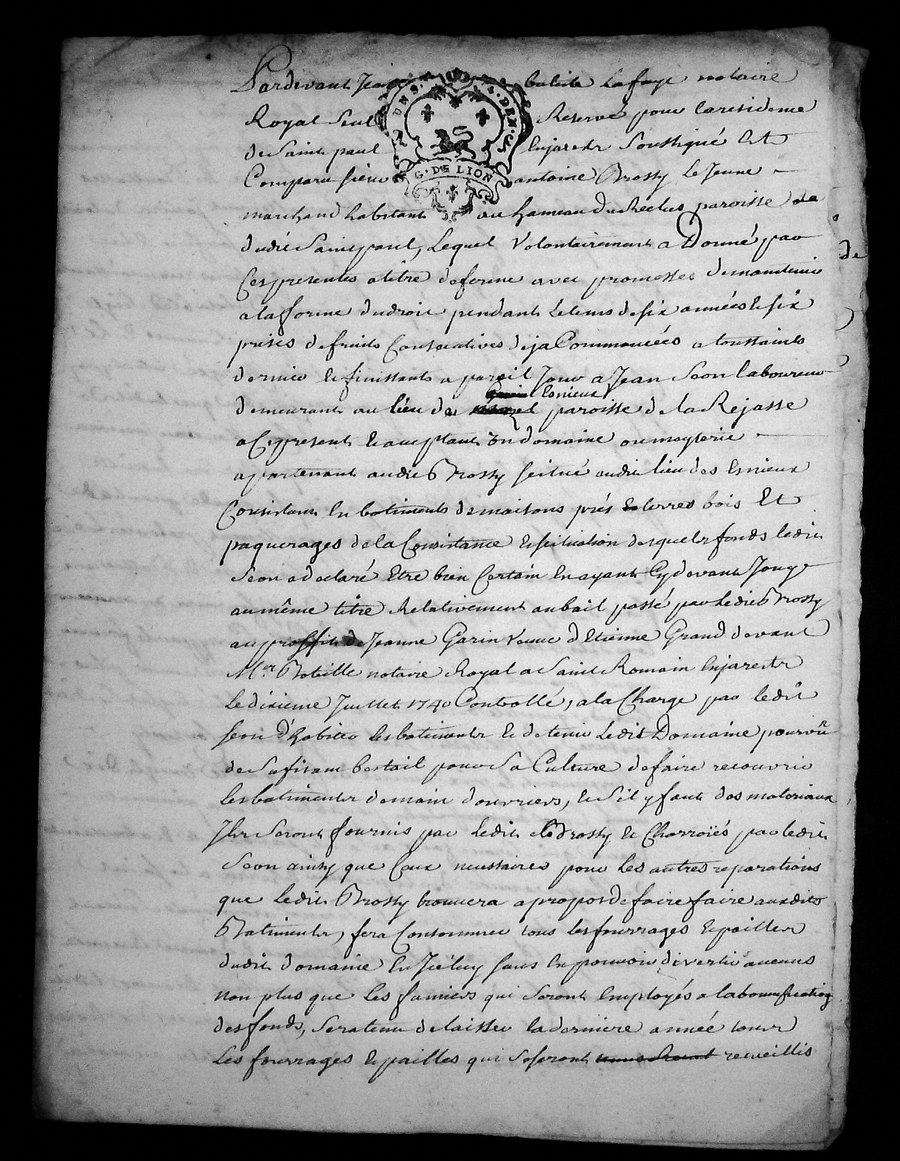 Pardevant Jean batiste Lafaye notaire
Royal Seul Reservé pour la residence
de Saint paul Enjarest Soussigné Est
UN S. 4. DEN.
G. DE LION
Comparu sieur antoine Brossy Le Jeune
marchand habitant au hameau du Reclus paroisse de
dudit Saint paul, Lequel Volontairement a Donné par
de
Ces presentes a titre deferme avec promesse demaintenir
a la forme dudroit pendant Letems desix années & six
prises defruits Consecutives deja Commancées a toussaints
dernier & finissants a pareil Jour a Jean Seon laboureur
Esnieux
demeurant au lieu des paroisse de la Rejasse
a Ce present & acceptant un domaine ou mayterie
apartenant audit Brossy scitué audit lieu des Esnieux
Consistant En batiments demaisons prés & terres bois Et
paquerages de la Consistance & scituation desquels fonds ledit
Seon a declaré Etre bien Certain En ayant Cydevant Jouy
aumême titre Relativement aubail passé par Ledit Brossy
au proffit de Jeanne Garin Veuve d'Etienne Grand devant
Me Boteille notaire Royal a Saint Romain Enjarest
Le dixieme Juillet 1740 Controllé, a la Charge par ledit
Seon d'habiter les batiments & detenir Ledit Domaine pourvû
de Sufisant bestail pour Sa Culture defaire recouvrir
les batiments demain d'ouvriers, & S'il y faut des materiaux
Ils Seront fournis par ledit Brossy & Charroiés par ledit
Seon ainsy que Ceux necessaires pour les autres reparations
que ledit Brossy trouvera apropos defaire faire auxdits
Batiments, fera Consommer tous les fourrages & pailles
dudit domaine En Iceluy sans En pouvoir divertir aucuns
non plus que les fumiers qui Seront Employés a la bonnification
des fonds, Sera tenu delaisser la derniere année tous
Les fourrages & pailles qui Se seront recueillis